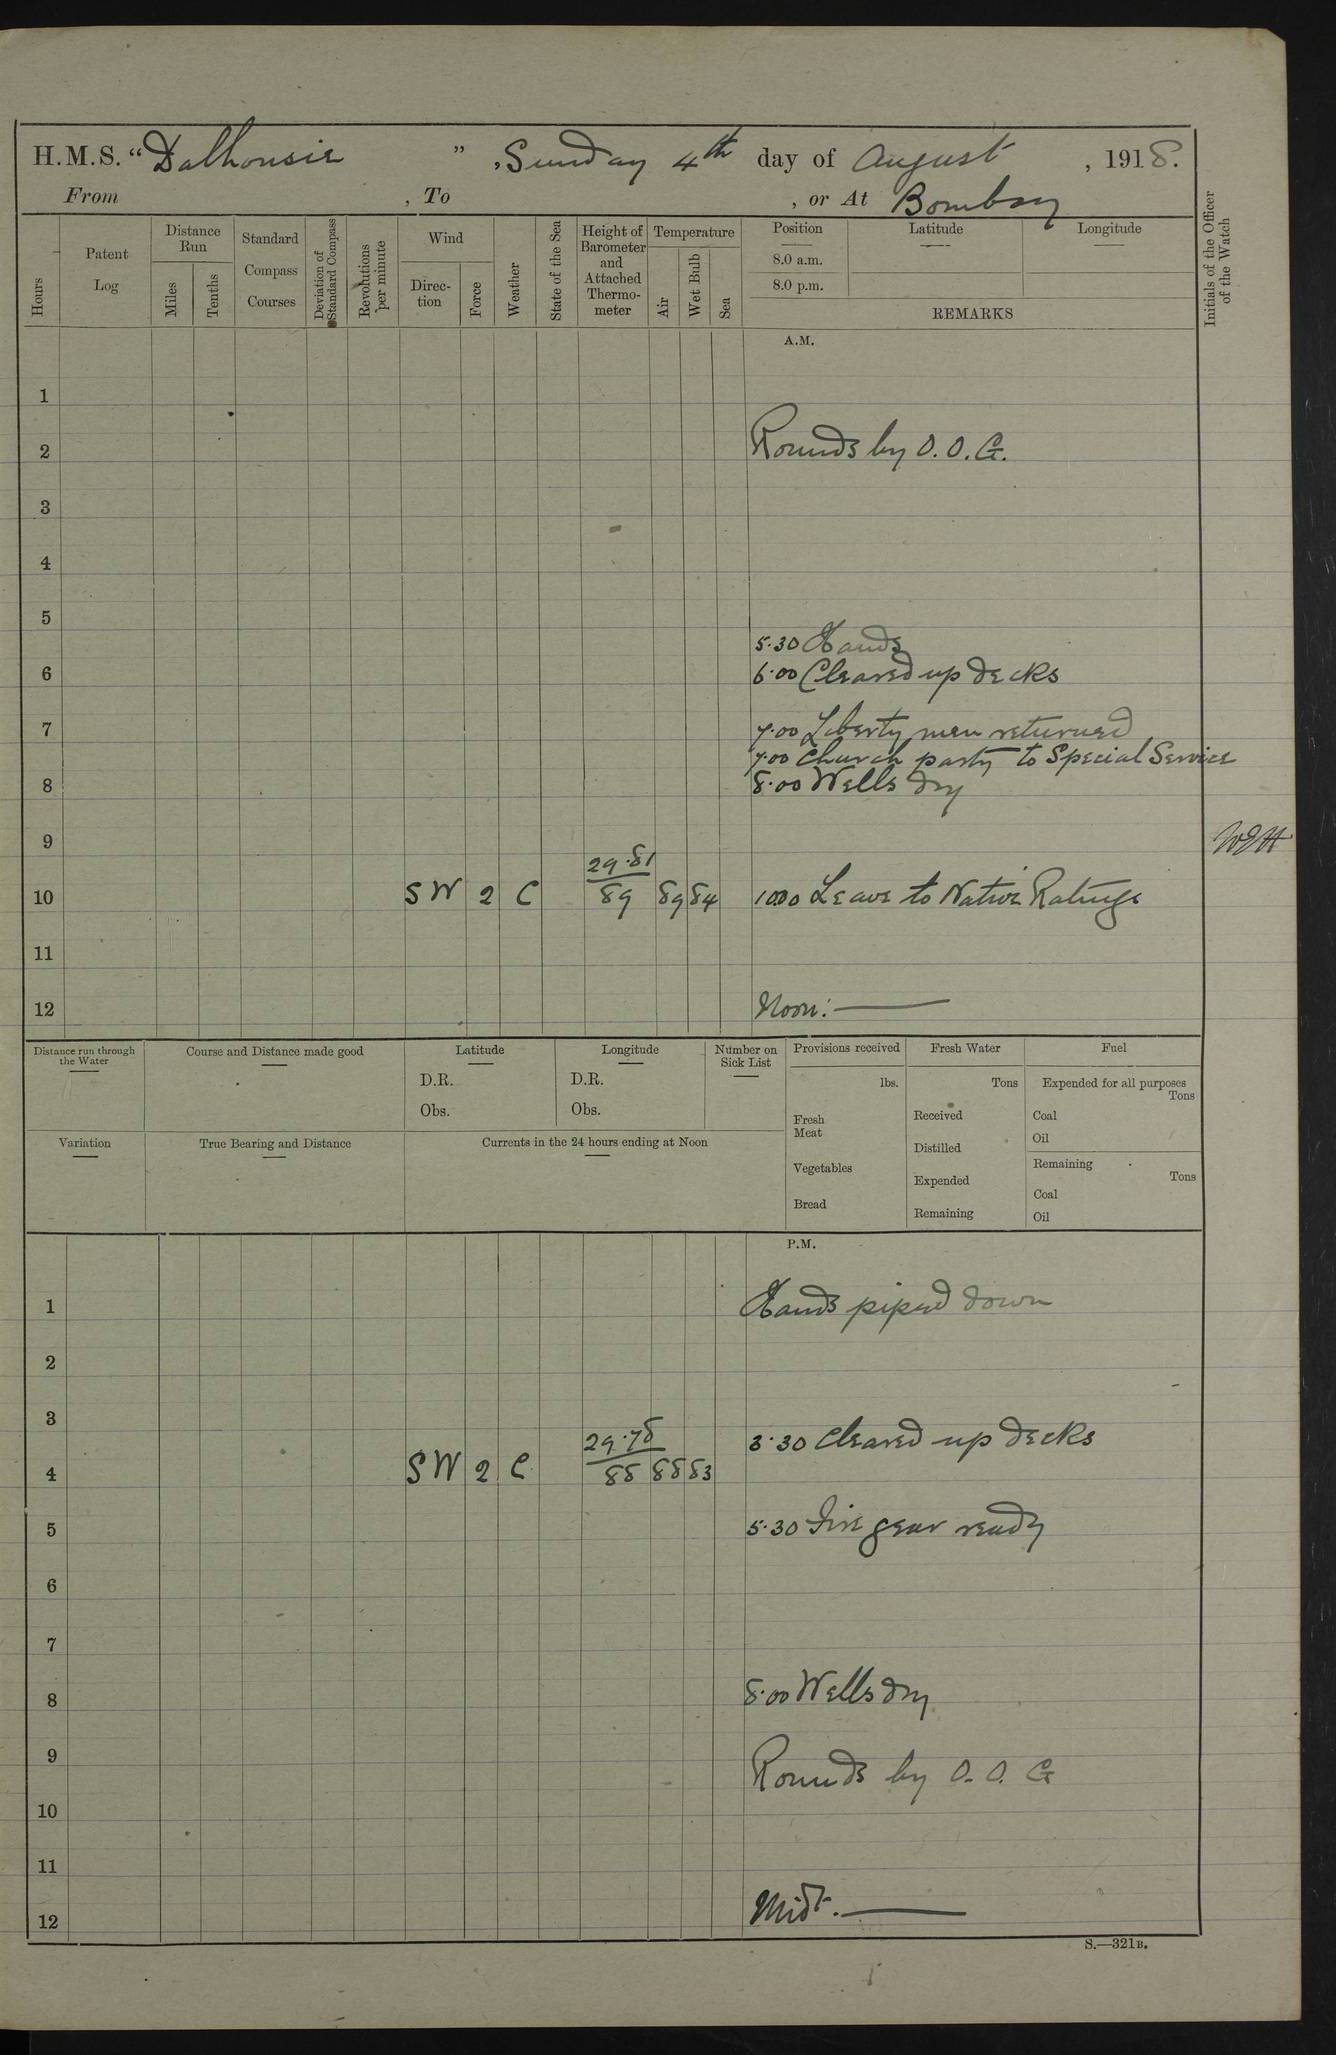 H.M.S. “Dalhousie ” , Sunday 4th day of August , 1918.
From , To , or At Bombay
Hours
Patent Log
Distance Run
Miles
Tenths
Standard Compass Courses
Deviation of Standard Compass
Revolutions per minute
Wind
Direction
Force
Weather
State of the Sea
Height of Barometer and Attached Thermometer
Temperature
Air
Wet Bulb
Sea
Position
8.0 a.m.
8.0 p.m.
Latitude
Longitude
REMARKS
Initials of the Officer of the Watch
A.M.
1
2 Rounds by O.O.G.
3
4
5
5.30 Hands
6 6.00 Cleared up decks
7 7.00 Liberty men returned
7.00 Church party to Special Service
8 8.00 Wells dry
9
29.81
10 SW 2 C 89 89 84 10.00 Leave to Native Ratings
11
12 Noon: —
Distance run through the Water
Course and Distance made good
Latitude
D.R.
Obs.
Longitude
D.R.
Obs.
Number on Sick List
Provisions received
lbs.
Fresh Meat
Vegetables
Bread
Fresh Water
Tons
Received
Distilled
Expended
Remaining
Fuel
Expended for all purposes
Tons
Coal
Oil
Remaining
Tons
Coal
Oil
Variation
True Bearing and Distance
Currents in the 24 hours ending at Noon
P.M.
1 Hands piped down
2
3
29.78 3.30 Cleared up decks
4 SW 2 C 88 88 83
5 5.30 Fire gear ready
6
7
8 8.00 Wells dry
9 Rounds by O.O.G
10
11
12 Midt. —
S.—321B.